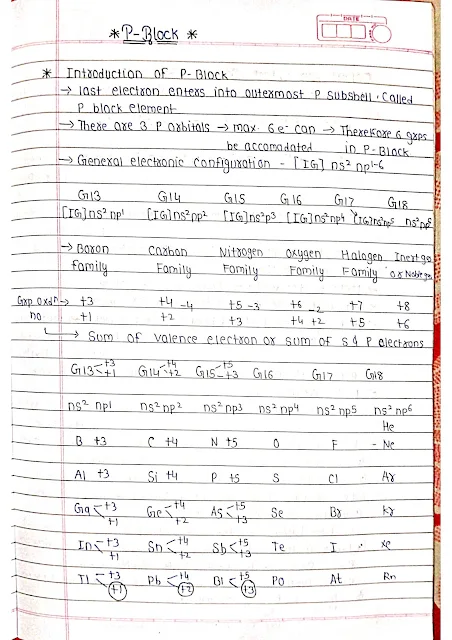 DATE
* P-Block *
* Introduction of P-Block
→ last electron enters into outermost P subshell. Called
P block element
→ There are 3 P orbitals → max. 6e⁻ can → Therefore 6 grps
be accomadated in P-Block
→ General electronic configuration - [IG] ns² np¹⁻⁶
G13 G14 G15 G16 G17 G18
[IG]ns²np¹ [IG]ns²np² [IG]ns²p³ [IG]ns²np⁴ [IG]ns²np⁵ ns²np⁶
→ Boron Carbon Nitrogen Oxygen Halogen Inert ga
family Family Family Family Family or Noble ga
Grp oxdⁿ → +3 +4 -4 +5 -3 +6 -2 +7 +8
no. +1 +2 +3 +4 +2 +5 +6
→ Sum of valence electron or sum of s & P electrons
G13 < +3 +1 G14 < +4 +2 G15 < +5 +3 G16 G17 G18
ns² np¹ ns² np² ns² np³ ns² np⁴ ns² np⁵ ns² np⁶
He
B +3 C +4 N +5 O F - Ne
Al +3 Si +4 P +5 S Cl Ar
Ga < +3 +1 Ge < +4 +2 As < +5 +3 Se Br Kr
In < +3 +1 Sn < +4 +2 Sb < +5 +3 Te I Xe
Tl < +3 +1 Pb < +4 +2 Bi < +5 +3 Po At Rn